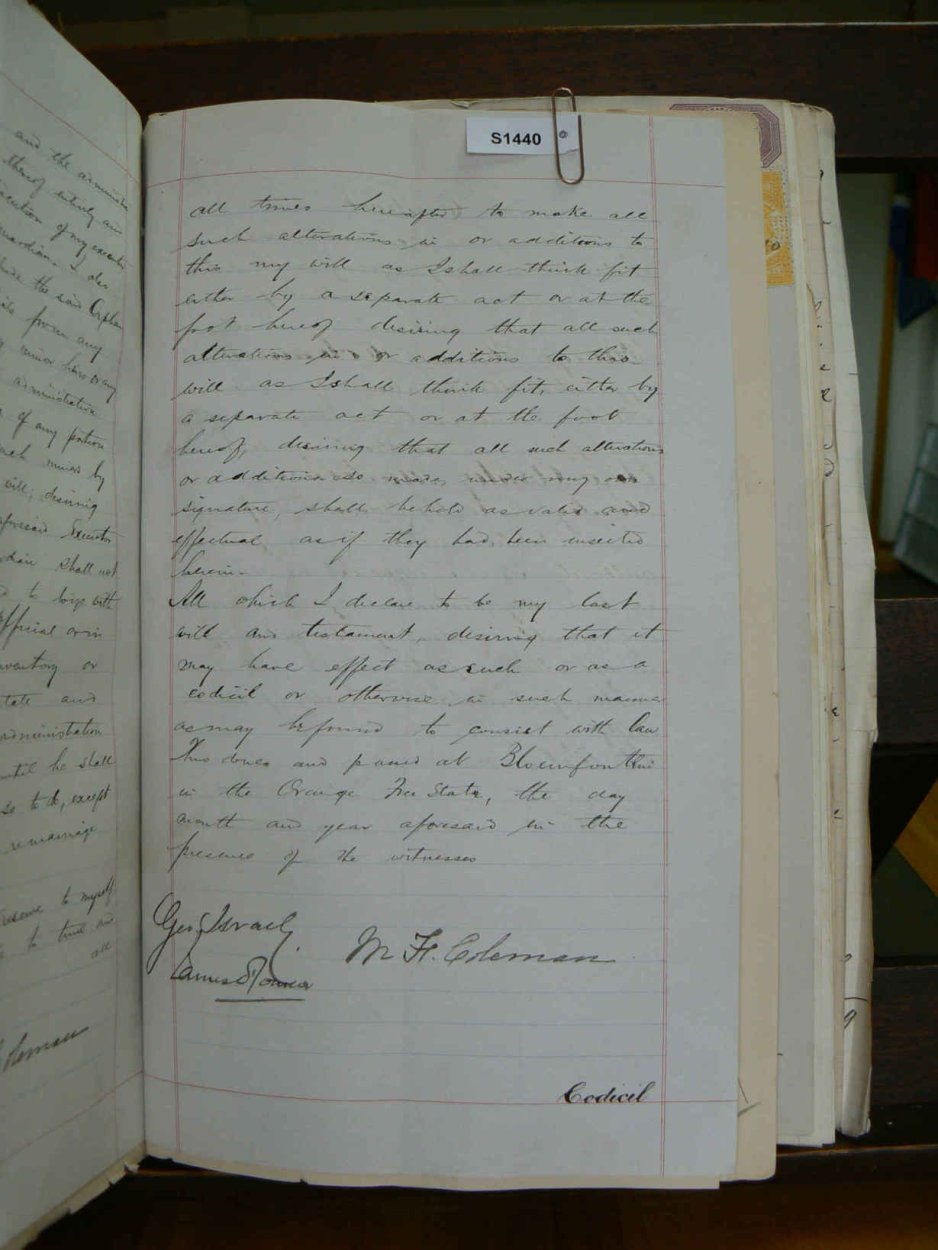 and the administra
thereof entirely and
execution of my executor
guardian I des
the said Orphan
from any
minor heirs or any
administration
of any portion
such minors by
will, desiring
aforesaid Executor
shall not
to lodge with
official or in
inventory or
tate and
administration
until he shall
so to do, except
remarriage
reserve to myself
to time and
all
oleman
S1440
all times hereafter to make all
such alterations in or additions to
this my will as I shall think fit
either by a separate act or at the
foot hereof desiring that all such
alterations in or additions to this
will as I shall think fit, either by
a separate act or at the foot
hereof, desiring that all such alterations
or additions so made, under my own
signature, shall be held as valid and
effectual as if they had been inserted
herein.
All which I declare to be my last
will and testament, desiring that it
may have effect as such or as a
codicil or otherwise in such manner
as may be found to consist with law
Thus done and passed at Bloemfontein
in the Orange Free State, the day
month and year aforesaid in the
presence of the witnesses
Geo Israel
M. H. Coleman
James
Codicil